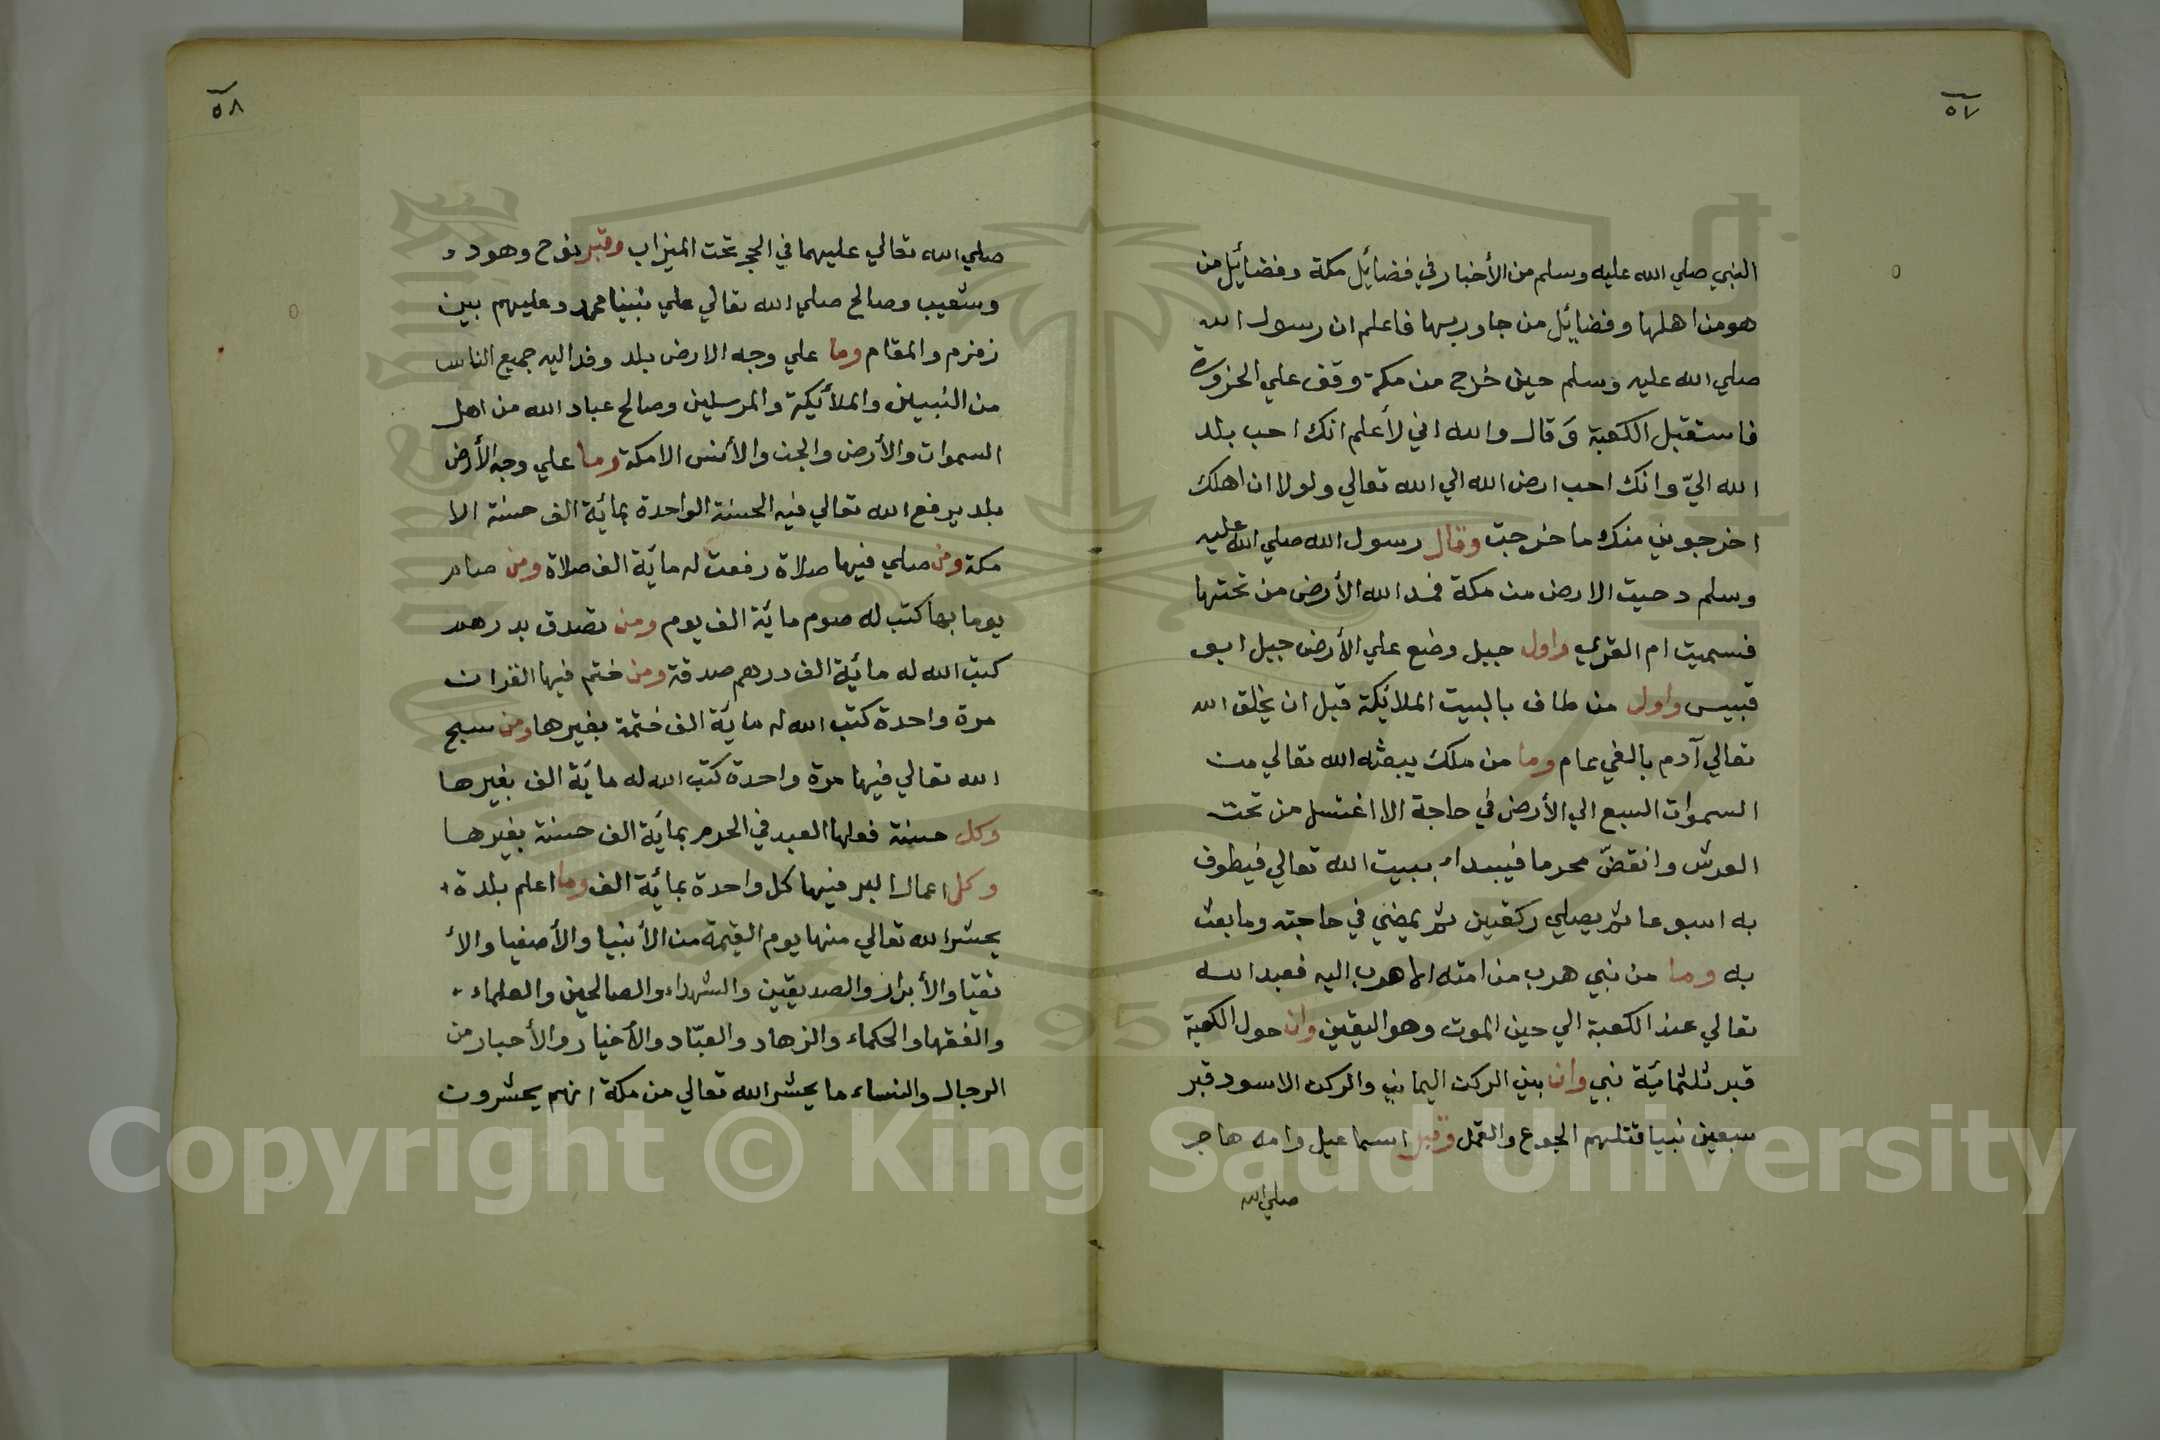 ٥٧
النبي صلي الله عليه وسلم من الأخبار في فضائل مكة وفضائل من
هو من اهلها وفضايل من جاور بها فاعلم ان رسول الله
صلي الله عليه وسلم حين خرج من مكة وقف علي الحزورة
فاستقبل الكعبة وَقال والله اني لأعلم انك احب بلد
الله اليّ وانك احب ارض الله الي الله تعالي ولولا ان اهلك
اخرجوني منك ما خرجت وقال رسول الله صلي الله عليه
وسلم دحيت الارض من مكة فمد الله الأرض من تحتها
فسميت ام القري واول جبل وضع علي الأرض جبل ابو
قبيس واول من طاف بالبيت الملائكة قبل ان يخلق الله
تعالي آدم بالفي عام وما من ملك يبعثه الله تعالي من
السموات السبع الي الأرض في حاجة الا اغتسل من تحت
العرش وانقضّ محرما فيبداء ببيت الله تعالي فيطوف
به اسبوعا ثم يصلي ركعتين ثم يمضي في حاجته وما بعث
به وما من نبي هرب من امته الا هرب اليه فعبد الله
تعالي عند الكعبة الي حين الموت وهو اليقين وان حول الكعبة
قبر ثلثمائة نبي وان بين الركن اليماني والركن الاسود قبر
سبعين نبيا قتلهم الجوع والقمل وقبر اسماعيل وامه هاجر
صلي الله
٥٨
صلي الله تعالي عليهما في الحجر تحت الميزاب وقبر نوح وهود و
وشعيب وصالح صلي الله تعالي علي نبينا محمد وعليهم بين
زمزم والمقام وما علي وجه الارض بلد وفد اليه جميع الناس
من النبيين والملأئكة والمرسلين وصالح عباد الله من اهل
السموات والأرض والجن والأنس الا مكة وما علي وجه الأرض
بلد يرفع الله تعالي فيه الحسنة الواحدة بمائة الف حسنة الا
مكة ومن صلي فيها صلاة رفعت له مائة الف صلاة ومن صام
يوما بها كتب له صوم مائة الف يوم ومن تصدق بدرهم
كتب الله له مائة الف درهم صدقة ومن ختم فيها القران
مرة واحدة كتب الله له مائة الف ختمة بغيرها ومن سبح
الله تعالي فيها مرة واحدة كتب الله له مائة الف بغيرها
وكل حسنة فعلها العبد في الحرم بمائة الف حسنة بغيرها
وكل اعمال البر فيها كل واحدة بمائة الف وما اعلم بلدة
يحشر الله تعالي منها يوم القيمة من الأنبيا والأصفيا والأ
تقيا والأبرار والصديقين والشهداء والصالحين والعلماء
والفقها والحكماء والزهاد والعبّاد والأخيار والأحبار من
الرجال والنساء ما يحشر الله تعالي من مكة انهم يحشرون
1957
Copyright © King Saud University